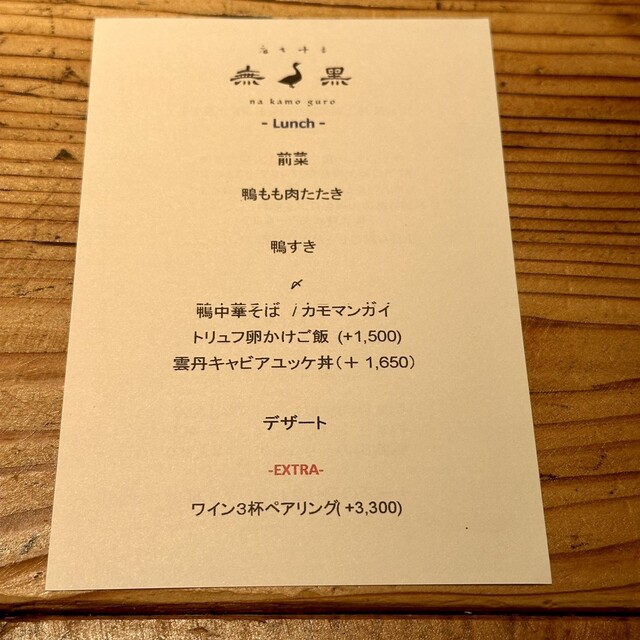 無 黒
na kamo guro
- Lunch -
前菜
鴨もも肉たたき
鴨すき
〆
鴨中華そば / カモマンガイ
トリュフ卵かけご飯 (+1,500)
雲丹キャビアユッケ丼(+ 1,650)
デザート
-EXTRA-
ワイン3杯ペアリング( +3,300)